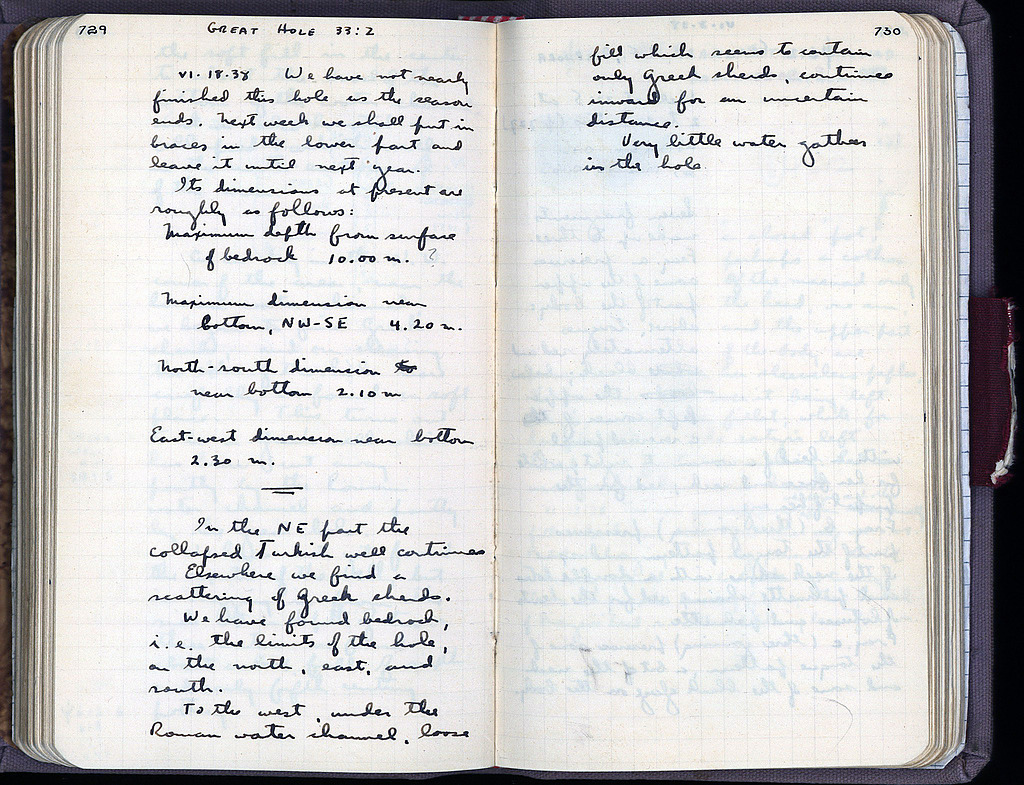 729
GREAT HOLE 33:2
VI-18-38 We have not nearly
finished this hole as the season
ends. Next week we shall put in
braces in the lower part and
leave it until next year.
Its dimensions at present are
roughly as follows:
Maximum depth from surface
of bedrock 10.00 m. ?
Maximum dimension near
bottom, NW-SE 4.20 m.
North-south dimension
near bottom 2.10 m
East-west dimension near bottom
2.30 m.
In the NE part the
collapsed Turkish well continues
Elsewhere we find a
scattering of Greek sherds.
We have found bedrock,
i.e. the limits of the hole,
on the north, east, and
south.
To the west, under the
Roman water channel, loose
730
fill which seems to contain
only Greek sherds, continues
inward for an uncertain
distance.
Very little water gathers
in the hole.